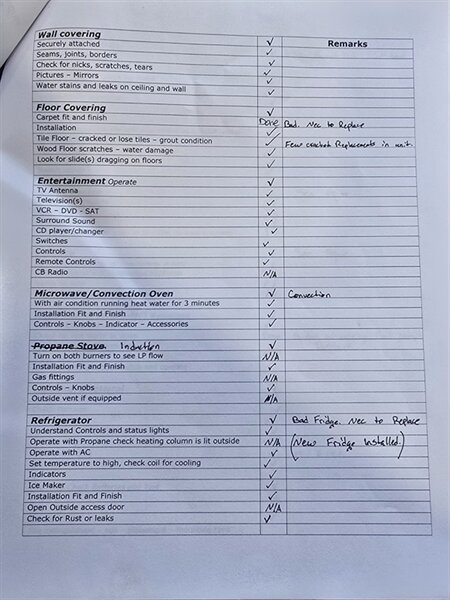 Wall covering √ Remarks
Securely attached ✓
Seams, joints, borders ✓
Check for nicks, scratches, tears ✓
Pictures – Mirrors ✓
Water stains and leaks on ceiling and wall ✓
Floor Covering √
Carpet fit and finish Done Bad. Nec to Replace
Installation ✓
Tile Floor – cracked or lose tiles – grout condition ✓ Few cracked. Replacements in unit.
Wood Floor scratches – water damage ✓
Look for slide(s) dragging on floors ✓
Entertainment Operate √
TV Antenna ✓
Television(s) ✓
VCR – DVD - SAT ✓
Surround Sound ✓
CD player/changer ✓
Switches ✓
Controls ✓
Remote Controls ✓
CB Radio N/A
Microwave/Convection Oven √ Convection
With air condition running heat water for 3 minutes ✓
Installation Fit and Finish ✓
Controls – Knobs – Indicator – Accessories ✓
Propane Stove. Induction √
Turn on both burners to see LP flow N/A
Installation Fit and Finish ✓
Gas fittings N/A
Controls – Knobs ✓
Outside vent if equipped N/A
Refrigerator √ Bad Fridge. Nec to Replace
Understand Controls and status lights ✓
Operate with Propane check heating column is lit outside N/A (New Fridge Installed.)
Operate with AC ✓
Set temperature to high, check coil for cooling ✓
Indicators ✓
Ice Maker ✓
Installation Fit and Finish ✓
Open Outside access door N/A
Check for Rust or leaks ✓